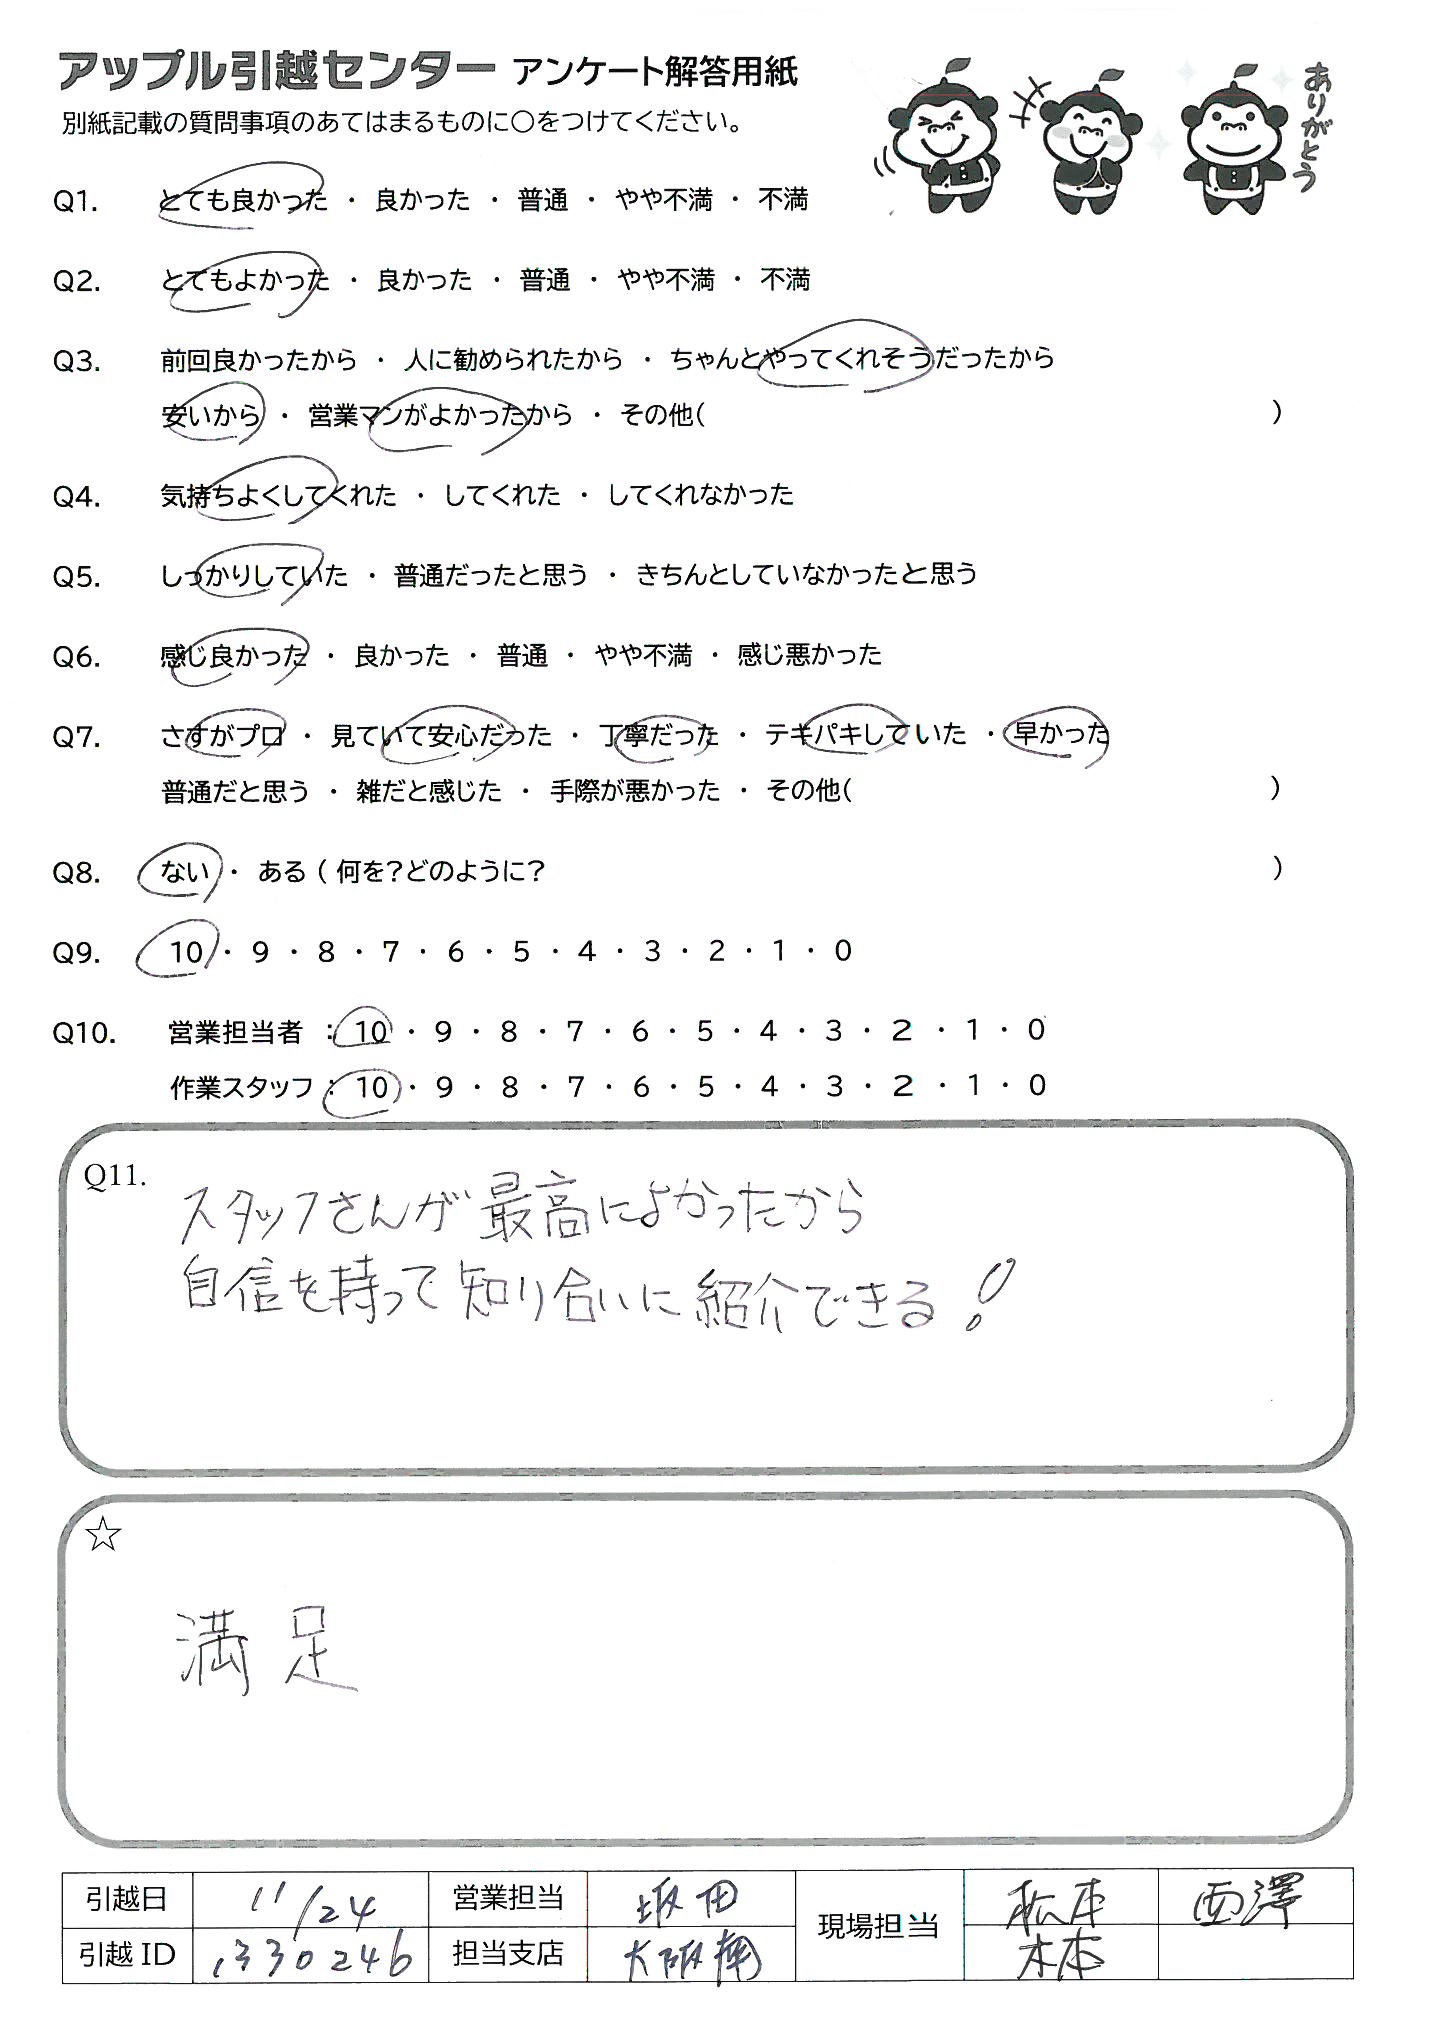 アップル引越センター アンケート解答用紙
ありがとう
別紙記載の質問事項のあてはまるものに○をつけてください。
Q1. とても良かった ・ 良かった ・ 普通 ・ やや不満 ・ 不満
Q2. とてもよかった ・ 良かった ・ 普通 ・ やや不満 ・ 不満
Q3. 前回良かったから ・ 人に勧められたから ・ ちゃんとやってくれそうだったから
安いから ・ 営業マンがよかったから ・ その他( )
Q4. 気持ちよくしてくれた ・ してくれた ・ してくれなかった
Q5. しっかりしていた ・ 普通だったと思う ・ きちんとしていなかったと思う
Q6. 感じ良かった ・ 良かった ・ 普通 ・ やや不満 ・ 感じ悪かった
Q7. さすがプロ ・ 見ていて安心だった ・ 丁寧だった ・ テキパキしていた ・ 早かった
普通だと思う ・ 雑だと感じた ・ 手際が悪かった ・ その他( )
Q8. ない ・ ある ( 何を?どのように? )
Q9. 10 ・ 9 ・ 8 ・ 7 ・ 6 ・ 5 ・ 4 ・ 3 ・ 2 ・ 1 ・ 0
Q10. 営業担当者 : 10 ・ 9 ・ 8 ・ 7 ・ 6 ・ 5 ・ 4 ・ 3 ・ 2 ・ 1 ・ 0
作業スタッフ : 10 ・ 9 ・ 8 ・ 7 ・ 6 ・ 5 ・ 4 ・ 3 ・ 2 ・ 1 ・ 0
Q11.
スタッフさんが最高によかったから
自信を持って知り合いに紹介できる!
☆
満足
引越日 11/24 営業担当 坂田 現場担当 松本 西澤
引越ID 1330246 担当支店 大阪南 木本